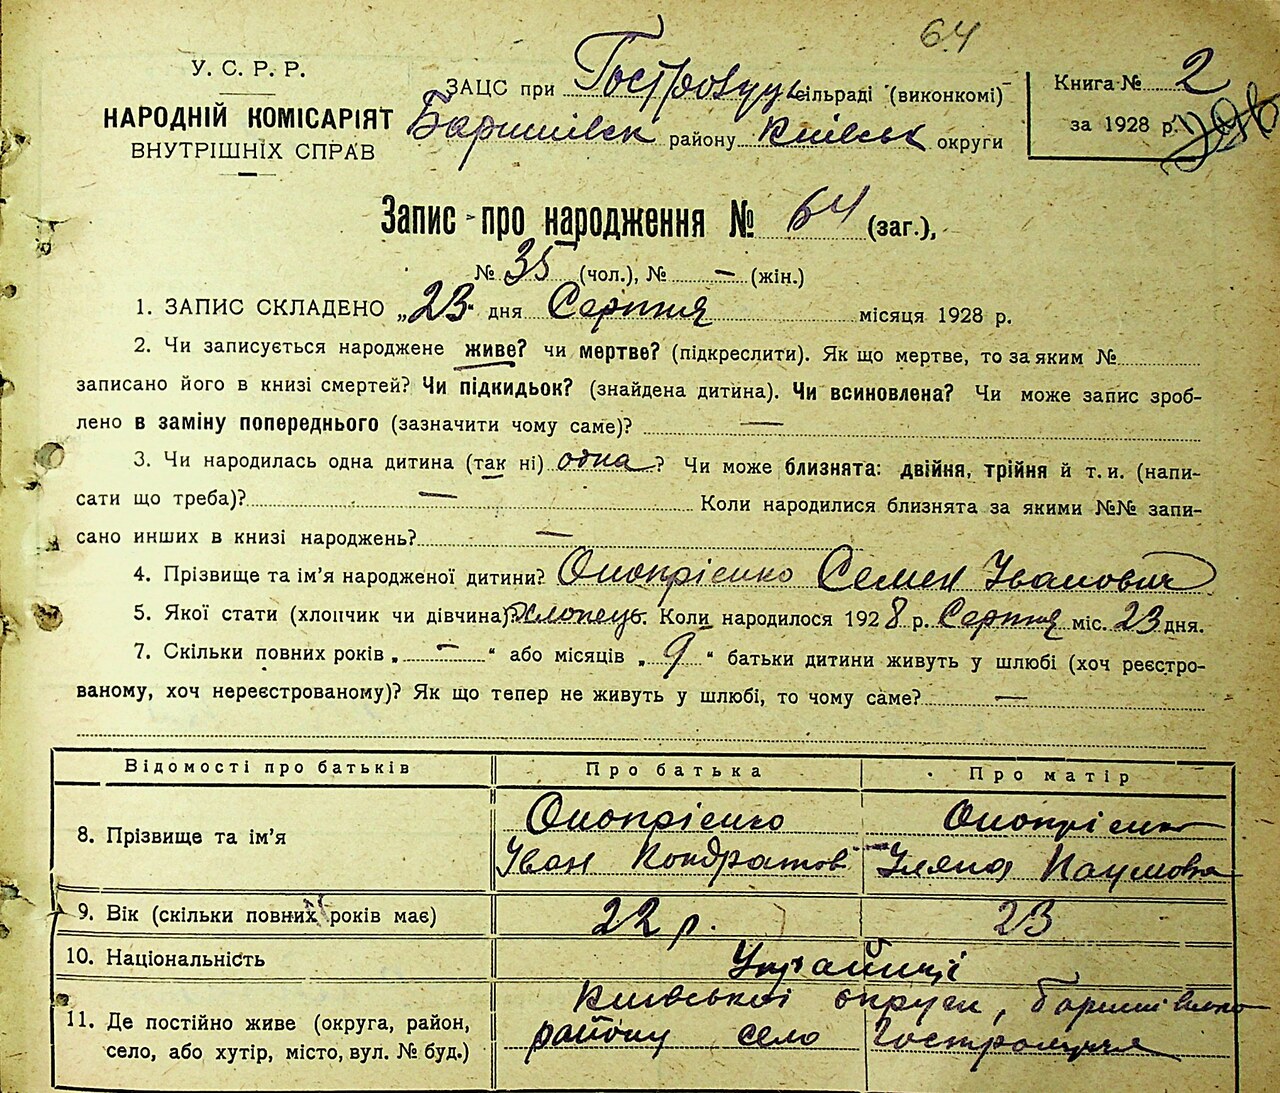 64
У. С. Р. Р.
НАРОДНІЙ КОМІСАРІЯТ
ВНУТРІШНІХ СПРАВ
ЗАЦС при Гостролуцк сільраді (виконкомі)
Баришівск району Київськ округи
Книга № 2
за 1928 р.
Запис про народження № 64 (заг.),
№ 35 (чол.), № — (жін.)
1. ЗАПИС СКЛАДЕНО „23" дня Серпня місяця 1928 р.
2. Чи записується народжене живе? чи мертве? (підкреслити). Як що мертве, то за яким №
записано його в книзі смертей? Чи підкидьок? (знайдена дитина). Чи всиновлена? Чи може запис зроб-
лено в заміну попереднього (зазначити чому саме)? —
3. Чи народилась одна дитина (так ні) одна? Чи може близнята: двійня, трійня й т. и. (напи-
сати що треба)? — Коли народилися близнята за якими №№ запи-
сано инших в книзі народжень? —
4. Прізвище та ім'я народженої дитини? Онопрієнко Семен Іванович
5. Якої стати (хлопчик чи дівчина) Хлопець. Коли народилося 1928 р. Серпня міс. 23 дня.
7. Скільки повних років „—" або місяців „9" батьки дитини живуть у шлюбі (хоч реєстро-
ваному, хоч нереєстрованому)? Як що тепер не живуть у шлюбі, то чому саме? —
Відомості про батьків Про батька Про матір
8. Прізвище та ім'я
Онопрієнко Онопрієнко
Іван Кондратов Уляна Наумовна
9. Вік (скільки повних років має) 22 р. 23
10. Національність Українці
11. Де постійно живе (округа, район,
село, або хутір, місто, вул. № буд.)
Київської округи, Баришівсько
району село Гостролуччя